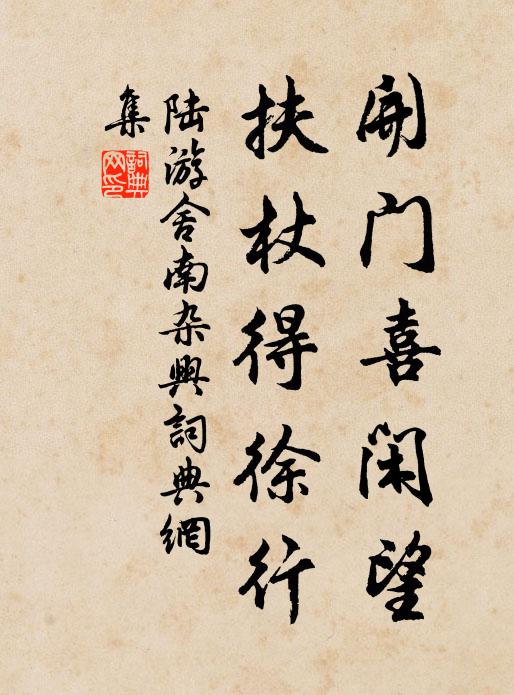 开门喜闲望
扶杖得徐行
陆游舍南杂興詞典網
集
詞典
网印